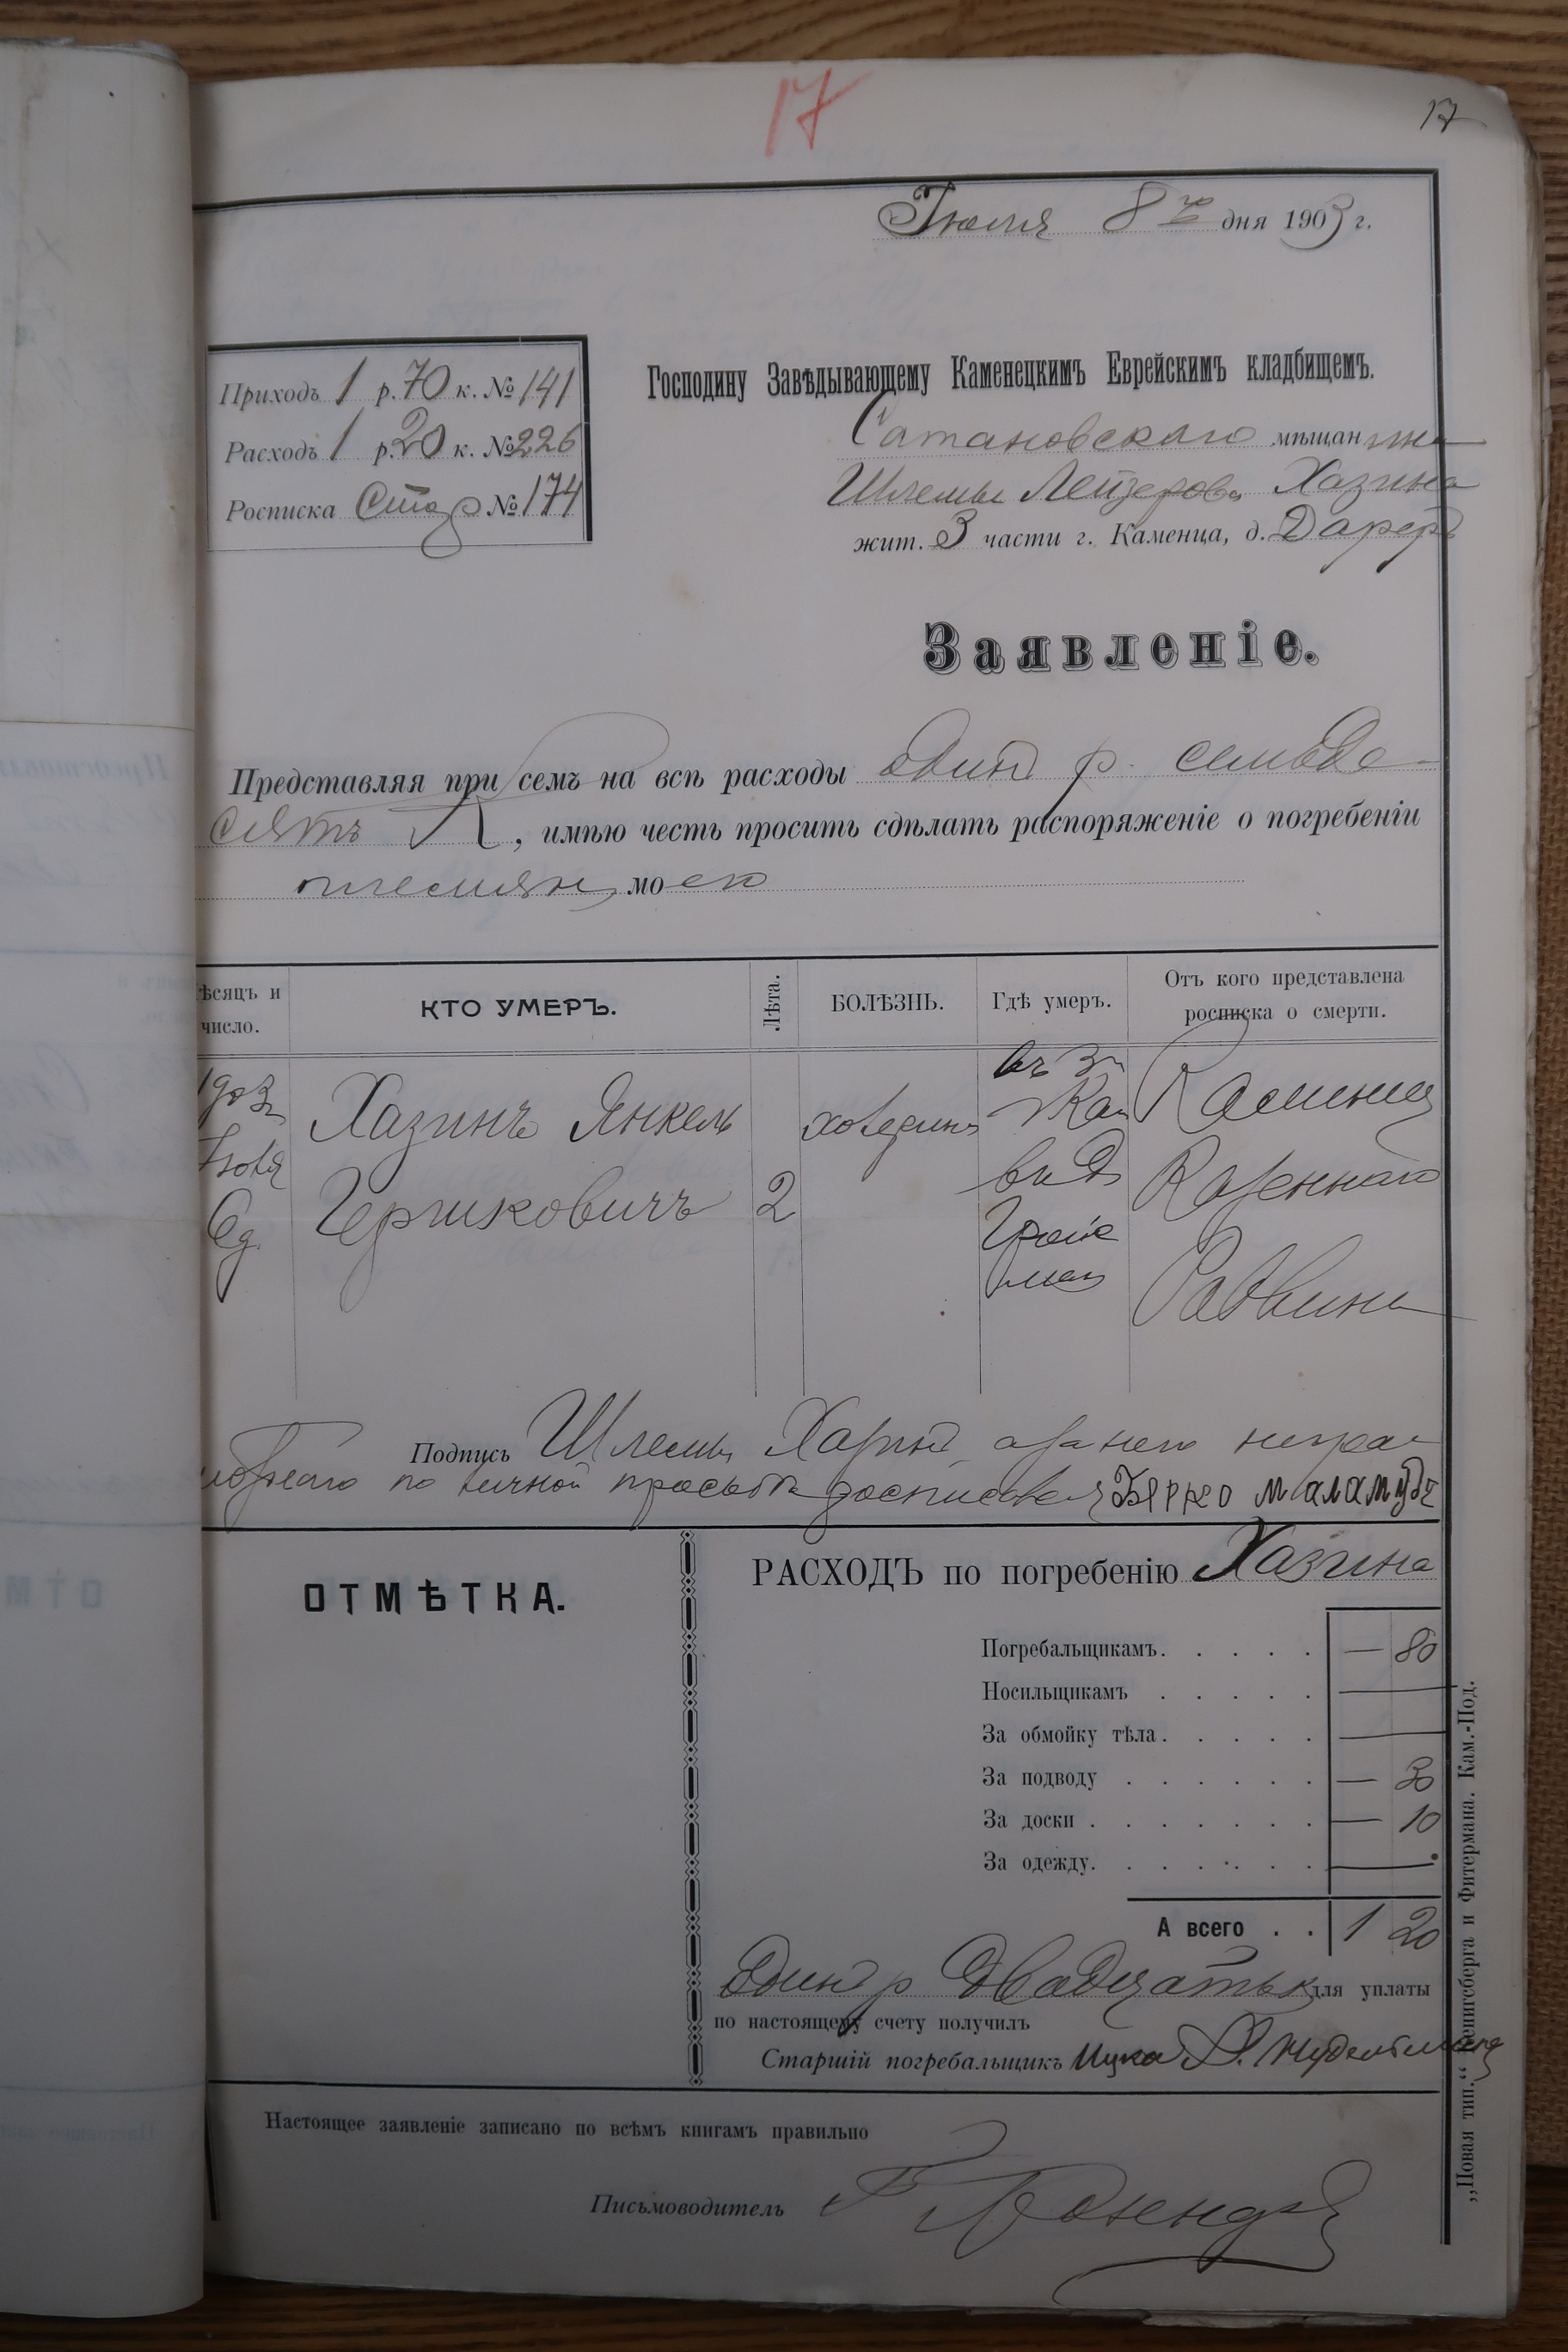 17
17
Июля 8го дня 1903 г.
Приходъ 1 р. 70 к. № 141
Расходъ 1 р. 20 к. № 226
Росписка Стар № 174
Господину Завѣдывающему Каменецкимъ Еврейскимъ кладбищемъ.
Сатановскаго мѣщанина
Шлемы Лейзерова Хазина
жит. 3 части г. Каменца, д.
Заявленіе.
Представляя при семъ на всѣ расходы один р. семьде-
сятъ к, имѣю честь просить сдѣлать распоряженіе о погребеніи
племян моего
ѣсяцъ и число.
КТО УМЕРЪ.
Лѣта.
БОЛѢЗНЬ.
Гдѣ умеръ.
Отъ кого представлена росписка о смерти.
1903
Хазинъ Янкель
Гершковичъ
2
холерин
въ 3
в д
Каменец
Казеннаго
Раввина
Подпись Шлемы Хазин а за него неграм
по личной просьбѣ росписався Бярко маламудъ
ОТМѢТКА.
РАСХОДЪ по погребенію Хазина
Погребальщикамъ. — 80
Носильщикамъ —
За обмойку тѣла. —
За подводу — 30
За доски — 10
За одежду. —
А всего 1 20
Один р двадцать к для уплаты
по настоящему счету получилъ
Старшій погребальщикъ Ицко Нудельман
Настоящее заявленіе записано по всѣмъ книгамъ правильно
Письмоводитель
„Новая тип.“ енигсберга и Фитермана. Кам.-Под.